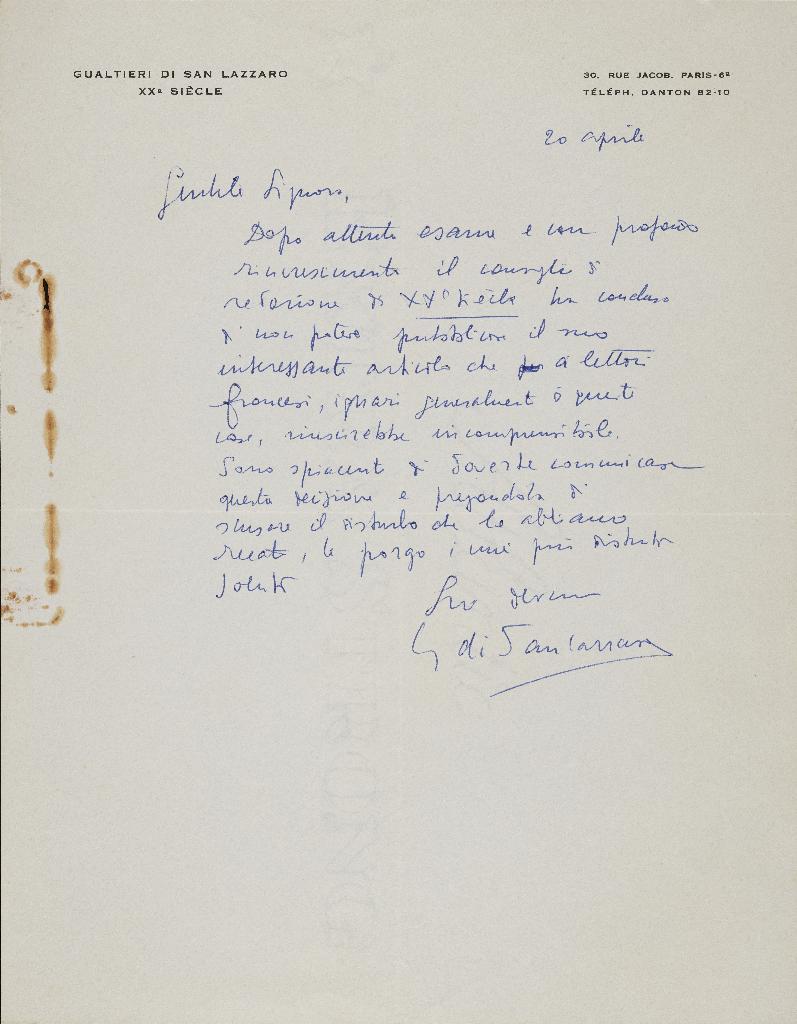 GUALTIERI DI SAN LAZZARO
XXe SIÈCLE
30, RUE JACOB. PARIS-6e
TÉLÉPH. DANTON 82-10
20 aprile
Gentile Signora,
Dopo attento esame e con profondo
rincrescimento il consiglio di
redazione di XX° Siècle ha concluso
di non potere pubblicare il suo
interessante articolo che ai lettori
francesi, ignari generalmente di queste
cose, riuscirebbe incomprensibile.
Sono spiacente di doverle comunicare
questa decisione e pregandola di
scusare il disturbo che le abbiamo
recato, le porgo i miei più distinti
saluti
Suo devmo
G di San Lazzaro